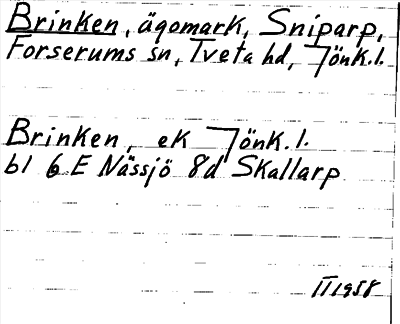 Brinken, ägomark, Sniparp,
Forserums sn, Tveta hd, Jönk.l.
Brinken, ek Jönk.l.
bl 6 E Nässjö 8d Skallarp
II 1958